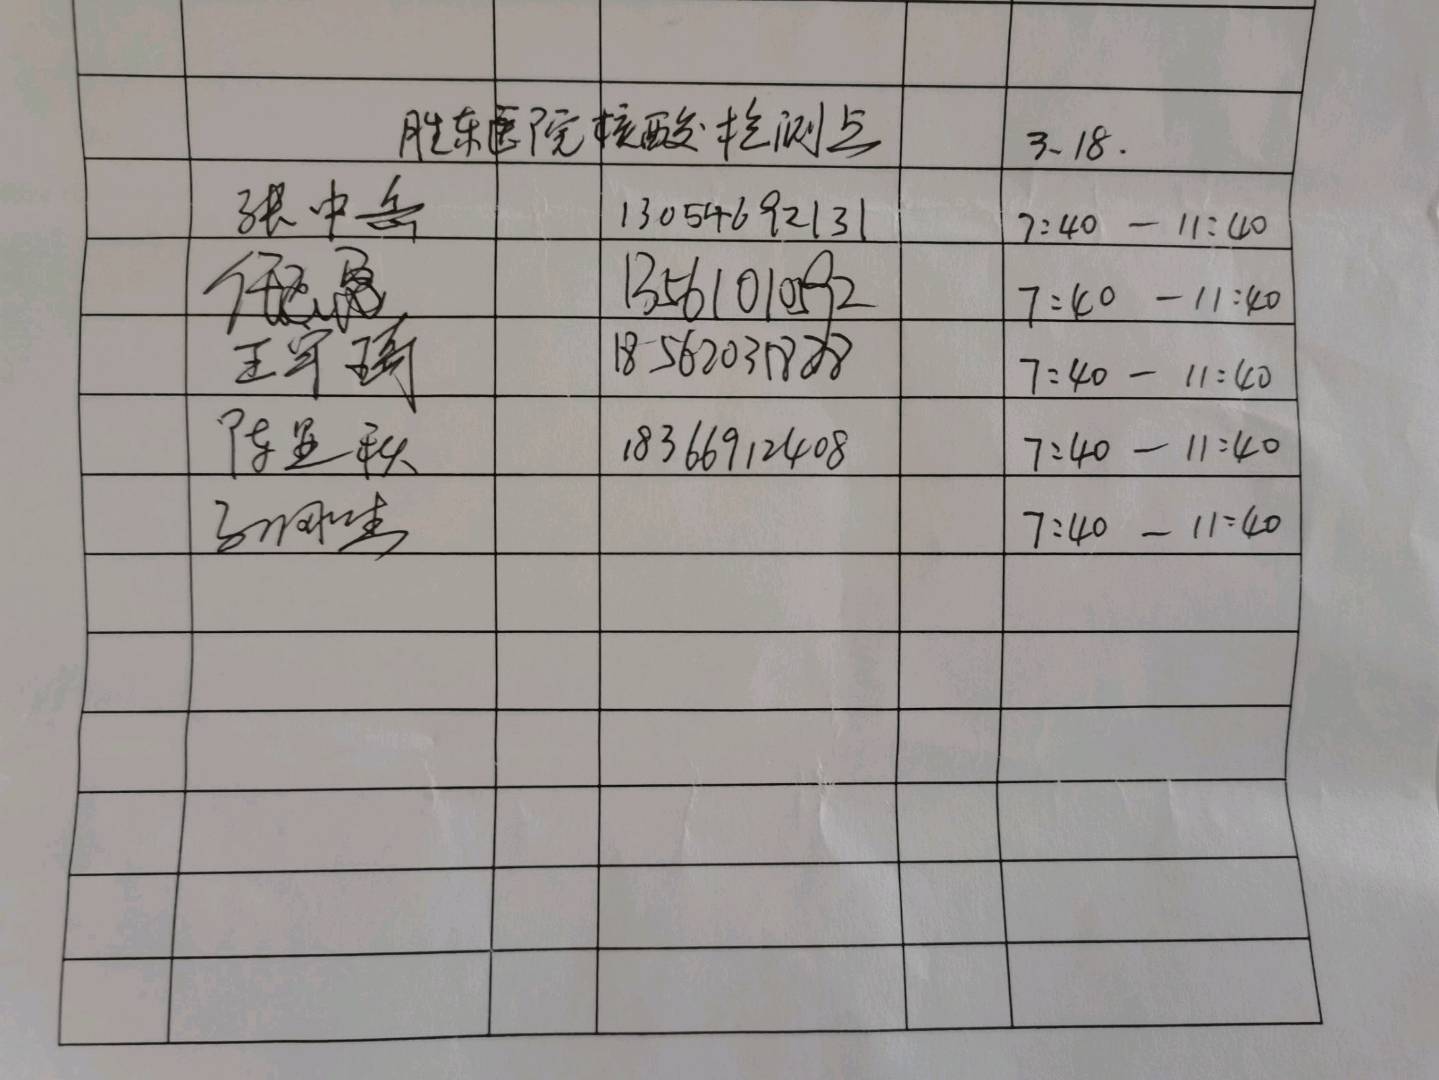 胜东医院核酸检测点 3-18.
张中岳 13054692131 7:40 — 11:40
任 13561010592 7:40 — 11:40
王军琦 7:40 — 11:40
陈显秋 18366912408 7:40 — 11:40
7:40 — 11:40